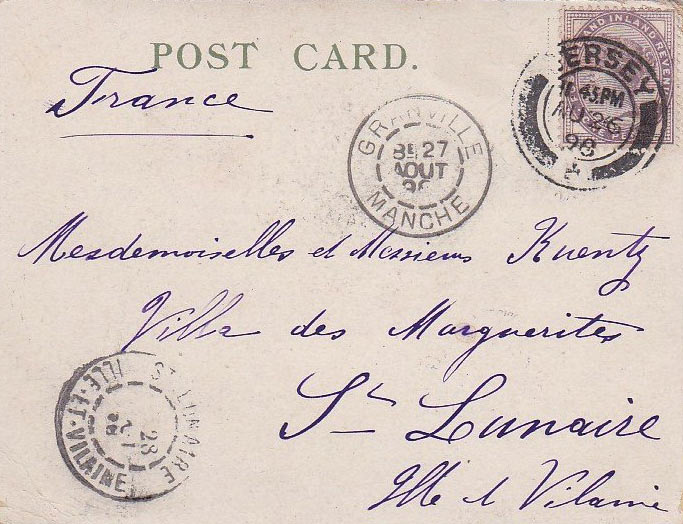 POST CARD.
France
AND INLAND REVE
JERSEY
11.45PM
AU 26
98
GRANVILLE
8E 27
AOUT
98
MANCHE
Mesdemoiselles et Messieurs Kuentz
Villa des Marguerites
St Lunaire
Ille et Vilaine
ST LUNAIRE
28
ILLE-ET-VILAINE